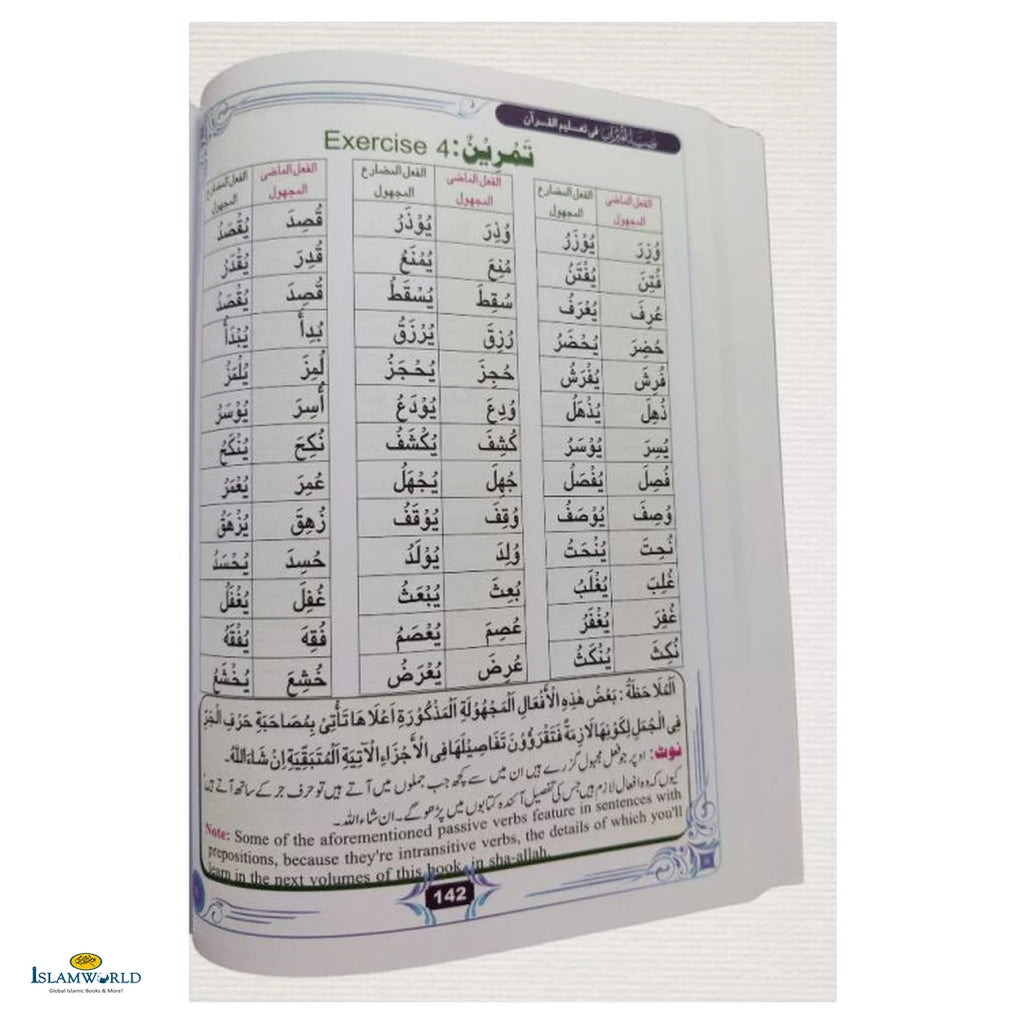 فى تعليم القرآن
تَمْرِيْنٌ: Exercise 4
الفعل الماضى المجهول	الفعل المضارع المجهول
وُزِرَ	يُوْزَرُ
فُتِنَ	يُفْتَنُ
عُرِفَ	يُعْرَفُ
حُضِرَ	يُحْضَرُ
فُرِشَ	يُفْرَشُ
ذُهِلَ	يُذْهَلُ
يُسِرَ	يُوْسَرُ
فُصِلَ	يُفْصَلُ
وُصِفَ	يُوْصَفُ
نُحِتَ	يُنْحَتُ
غُلِبَ	يُغْلَبُ
غُفِرَ	يُغْفَرُ
نُكِثَ	يُنْكَثُ
الفعل الماضى المجهول	الفعل المضارع المجهول
وُذِرَ	يُوْذَرُ
مُنِعَ	يُمْنَعُ
سُقِطَ	يُسْقَطُ
رُزِقَ	يُرْزَقُ
حُجِزَ	يُحْجَزُ
وُدِعَ	يُوْدَعُ
كُشِفَ	يُكْشَفُ
جُهِلَ	يُجْهَلُ
وُقِفَ	يُوْقَفُ
وُلِدَ	يُوْلَدُ
بُعِثَ	يُبْعَثُ
عُصِمَ	يُعْصَمُ
عُرِضَ	يُعْرَضُ
الفعل الماضى المجهول	الفعل المضارع المجهول
قُصِدَ	يُقْصَدُ
قُدِرَ	يُقْدَرُ
قُصِدَ	يُقْصَدُ
بُدِأَ	يُبْدَأُ
لُمِزَ	يُلْمَزُ
أُسِرَ	يُوْسَرُ
نُكِحَ	يُنْكَحُ
عُمِرَ	يُعْمَرُ
زُهِقَ	يُزْهَقُ
حُسِدَ	يُحْسَدُ
غُفِلَ	يُغْفَلُ
فُقِهَ	يُفْقَهُ
خُشِعَ	يُخْشَعُ
اَلْمُلَاحَظَةُ: بَعْضُ هٰذِهِ الْأَفْعَالِ الْمَجْهُوْلَةِ الْمَذْكُوْرَةِ اَعْلَاهَا تَأْتِىْ بِمُصَاحَبَةِ حَرْفِ الْجَرِّ
فِى الْجُمَلِ لِكَوْنِهَا لَازِمَةً فَتَقْرَؤُوْنَ تَفَاصِيْلَهَا فِى الْأَجْزَاءِ الْآتِيَةِ الْمُتَبَقِّيَةِ اِنْ شَاءَ اللّٰهُ۔
نوٹ: اوپر جو فعل مجہول گزرے ہیں ان میں سے کچھ جب جملوں میں آتے ہیں تو حرف جر کے ساتھ آتے ہیں
کیوں کہ وہ افعال لازم ہیں جس کی تفصیل آئندہ کتابوں میں پڑھوگے۔ ان شاء اللہ۔
Note: Some of the aforementioned passive verbs feature in sentences with
prepositions, because they're intransitive verbs, the details of which you'll
learn in the next volumes of this book, in sha-allah.
142
ISLAMWORLD
Global Islamic Books & More!